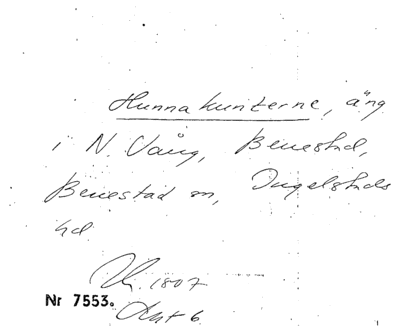 Hunnakunterne, äng
i N. Vång, Benestad,
Benestad sn, Ingelstads
hd.
1807
Nr 7553.
Akt 6